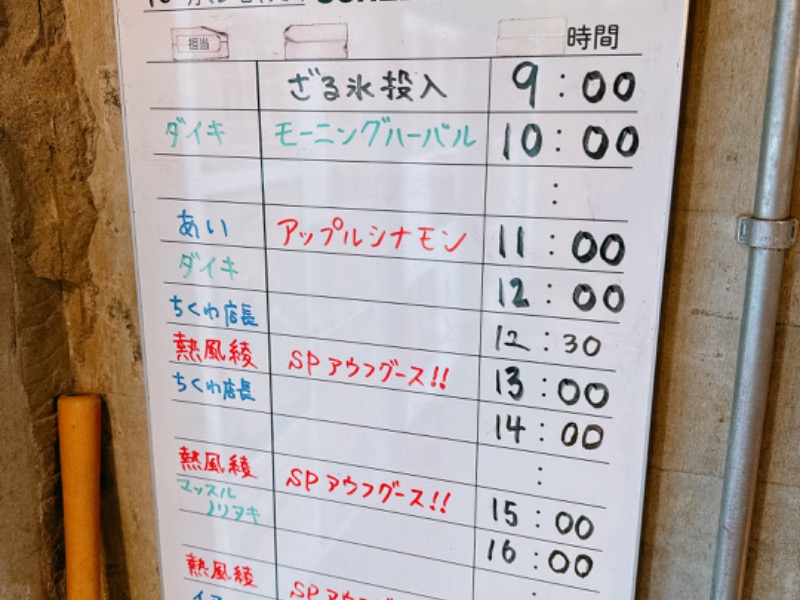 担当 時間
ざる氷投入 9:00
ダイキ モーニングハーバル 10:00
:
あい アップルシナモン 11:00
ダイキ 12:00
ちくわ店長 12:30
熱風綾 SPアウフグース!! 13:00
ちくわ店長 14:00
:
熱風綾 SPアウフグース!! 15:00
マッスル
ノリアキ 16:00
:
熱風綾 SPアウフグース